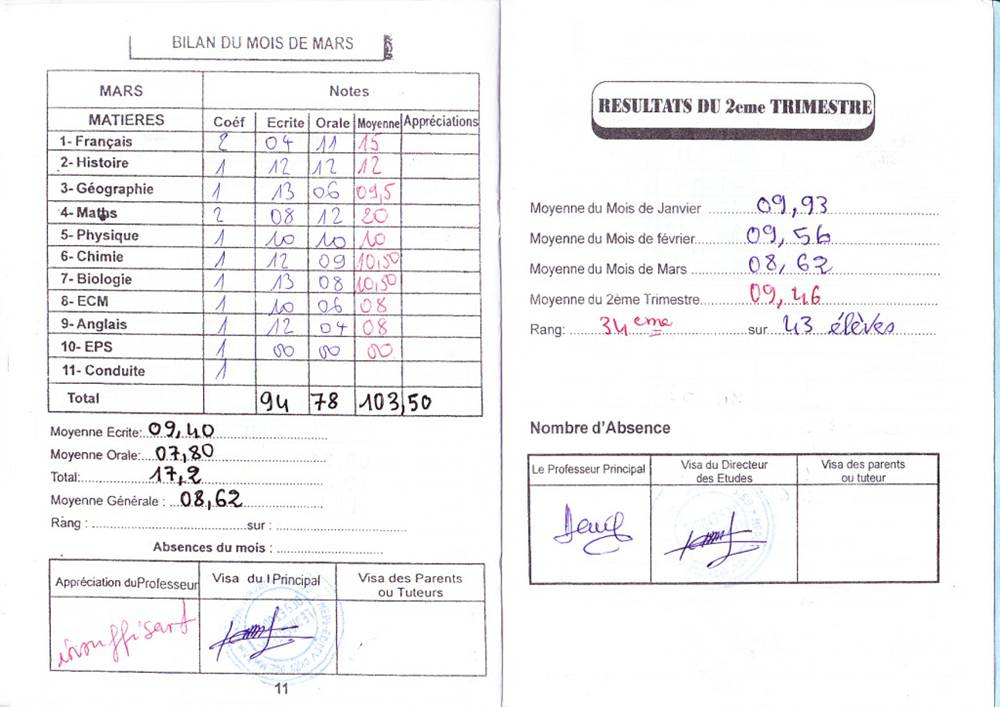 BILAN DU MOIS DE MARS
MARS Notes
MATIERES Coéf Ecrite Orale Moyenne Appréciations
1- Français 2 04 11 15
2- Histoire 1 12 12 12
3- Géographie 1 13 06 09,5
4- Maths 2 08 12 20
5- Physique 1 10 10 10
6- Chimie 1 12 09 10,50
7- Biologie 1 13 08 10,50
8- ECM 1 10 06 08
9- Anglais 1 12 04 08
10- EPS 1 00 00 00
11- Conduite 1
Total 94 78 103,50
Moyenne Ecrite: 09,40
Moyenne Orale: 07,80
Total: 17,2
Moyenne Générale : 08,62
Rang : sur :
Absences du mois :
Appréciation du Professeur Visa du l Principal Visa des Parents
ou Tuteurs
insuffisant
11
RESULTATS DU 2eme TRIMESTRE
Moyenne du Mois de Janvier 09,93
Moyenne du Mois de février 09,56
Moyenne du Mois de Mars 08,62
Moyenne du 2ème Trimestre 09,46
Rang: 34eme sur 43 élèves
Nombre d'Absence
Le Professeur Principal Visa du Directeur Visa des parents
des Etudes ou tuteur